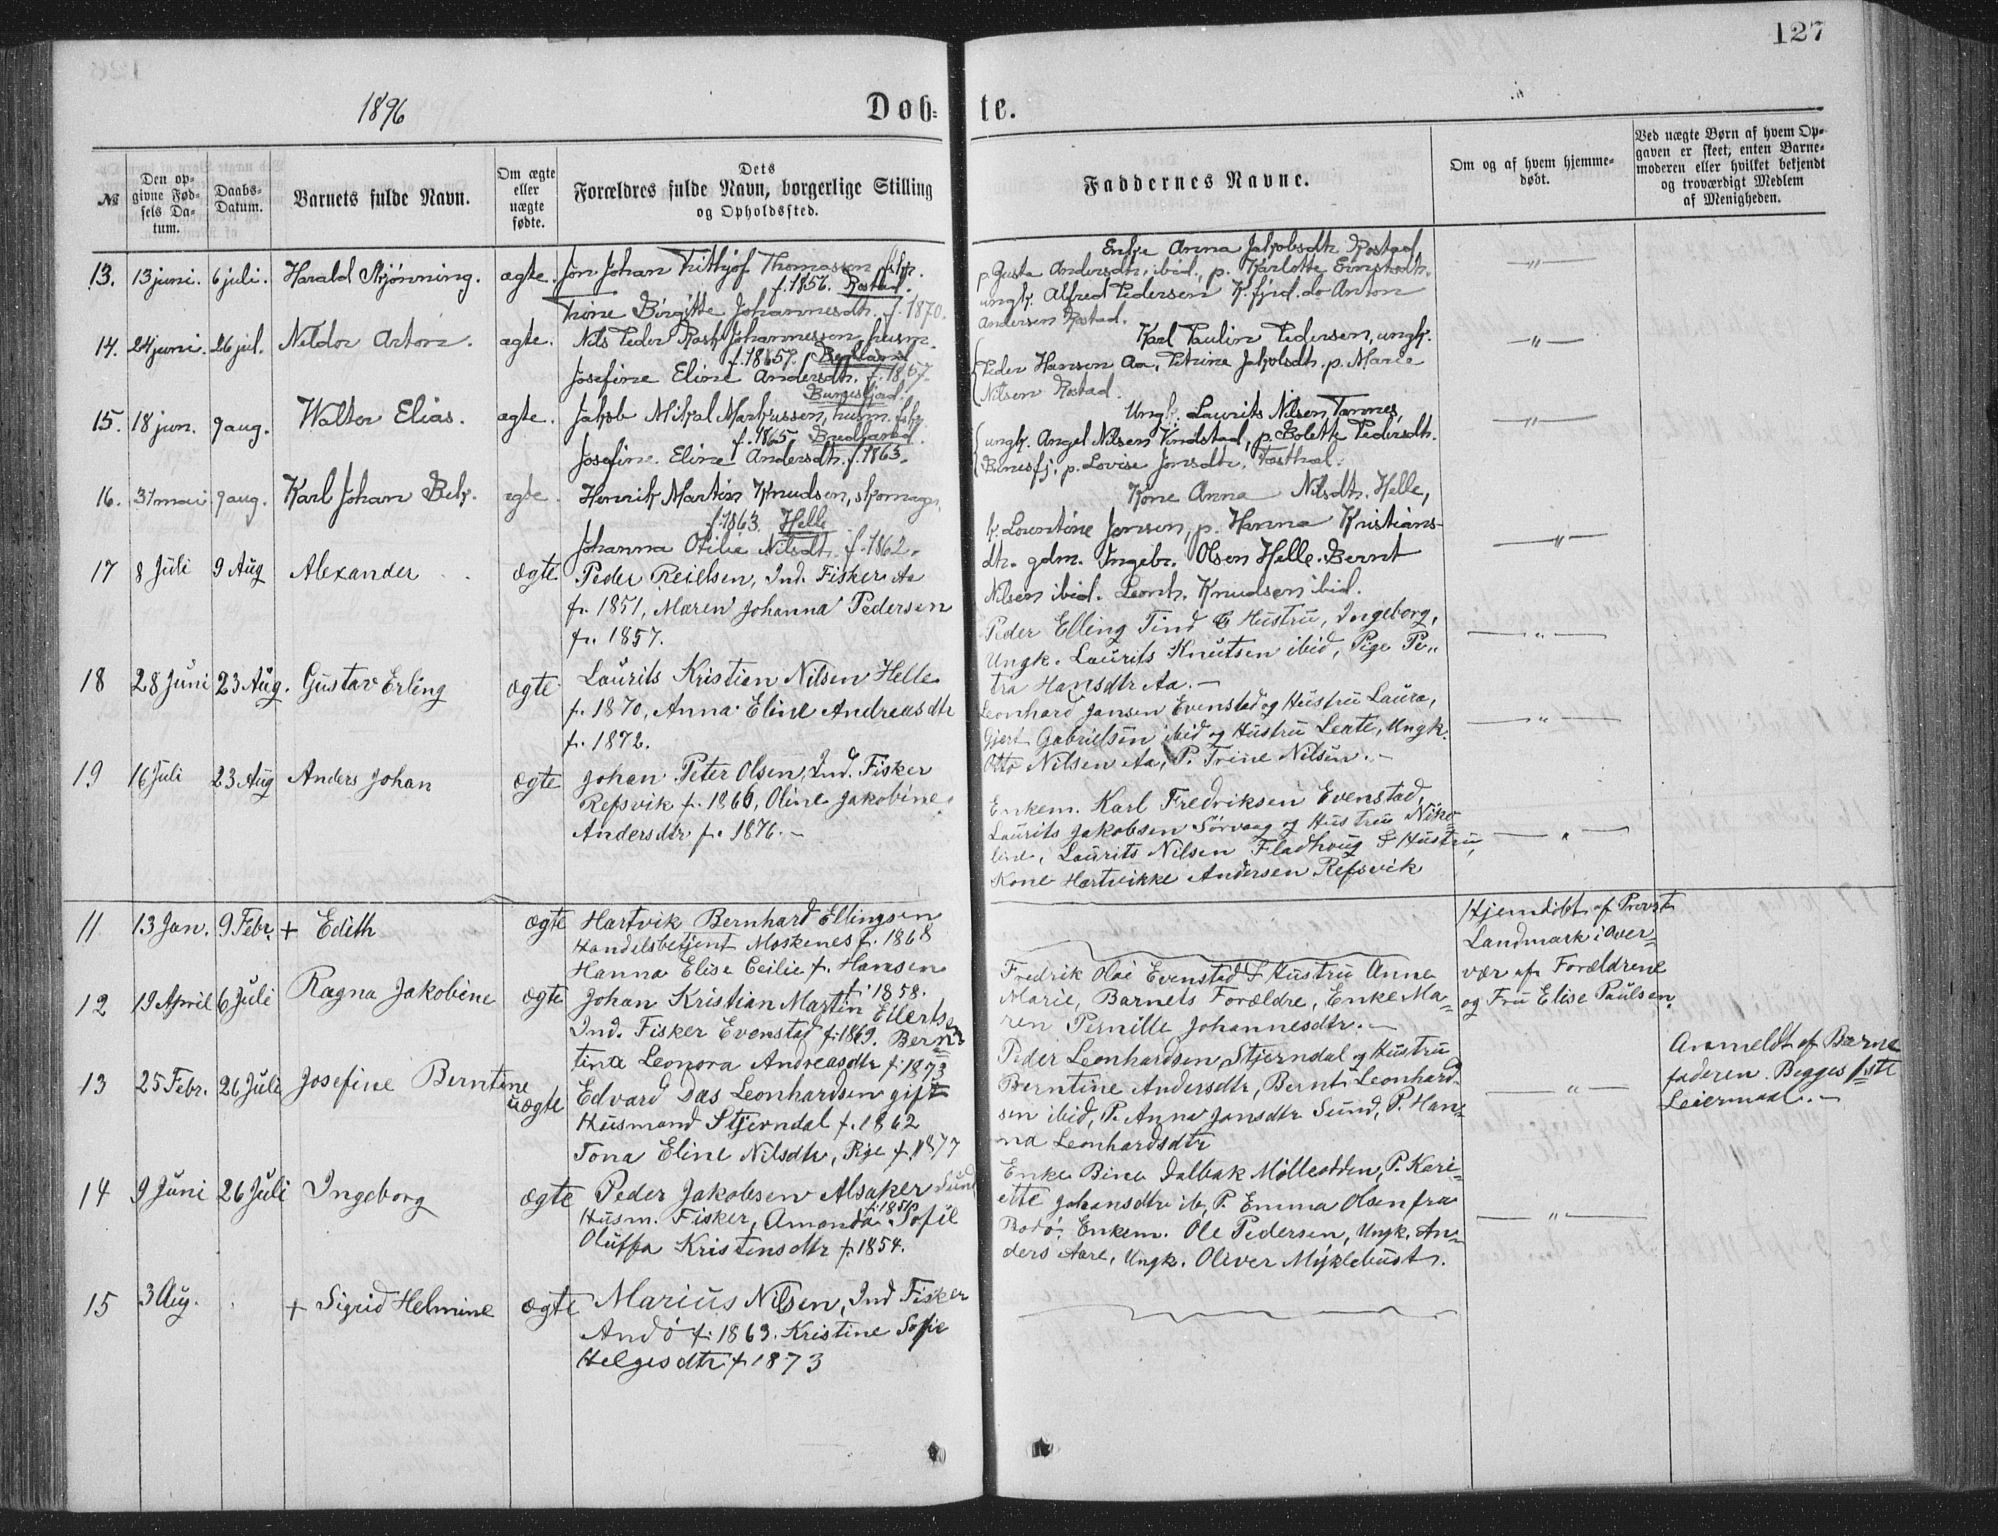 127
1896
Døb-
te.
№
Den op-
givne Fød-
sels Da-
tum.
Daabs-
Datum.
Barnets fulde Navn.
Om ægte
eller
uægte
fødte.
Dets
Forældres fulde Navn, borgerlige Stilling
og Opholdssted.
Faddernes Navne.
Om og af hvem hjemme-
døbt.
Ved uægte Børn af hvem Op-
gaven er skeet; enten Barne-
moderen eller hvilket bekjendt
og troværdigt Medlem
af Menigheden.
13. 13 juni. 6 juli. Harald Skjønning. ægte. Jon Johan Frithjof Thomassen fisk.
f. 1856. Rostad.
Trine Birgitte Johannesdtr. f. 1870.
Enke Anna Jakobsdtr. Rostad
p. Gusta Andersdtr. ibid., p. Karlotte
ungk. Alfred Pedersen K.fjrd. do Anton
Andersen Rostad.
—〃—
14. 24 juni. 26 jul. Nildor Arton. ægte. Nils Peder Rask Johannessen husm.
f. 1865.
Josefine Eline Andersdtr. f. 1867.
Karl Paulin Pedersen, ungk.
Peder Hansen Aa, Petrine Jakobsdtr. p. Marie
Nilsen Rostad.
—〃—
15. 18 jun. 9 aug. Walter Elias. ægte. Jakob Mikal Markussen, husm. fisk.
f. 1865
Josefine Eline Andersdtr. f. 1863.
Ungk. Laurits Nilsen Tannes,
ungk. Angel Nilsen Vindstad, p. Bolette Pedersdtr.
Bunesfj. p. Lovise Jonsdtr.
—〃—
16. 31 mai 9 aug. Karl Johan Bek. ægte. Henrik Martin Knudsen, skomager,
f. 1863. Helle
Johanna Otilie Nilsdt. f. 1862.
Kone Anna Nilsdtr. Helle,
k. Lorentine Jensen, p. Hanna Kristians-
dtr. gdm. Ingebr. Olsen Helle. Bernt
Nilsen ibid. Leonh. Knudsen ibid.
—〃—
17 8 Juli 9 Aug Alexander ægte Peder Reielsen, Ind. Fisker Aa
f. 1851, Maren Johanna Pedersen
f. 1857.
Peder Elling Tind & Hustru, Ingeborg,
Ungk. Laurits Knutsen ibid, Pige Pe-
tra Hansdtr Aa.—
—〃—
18 28 Juni 23 Aug. Gustav Erling ægte Laurits Kristian Nilsen Helle
f. 1870, Anna Eline Andreasdtr
f. 1872.
Leonhard Jansen Evenstad og Hustru Laura,
Gjert Gabrielsen ibid og Hustru Leate, Ungk.
Otto Nilsen Aa, P. Trine Nilsen.—
—〃—
19 16 Juli 23 Aug Anders Johan ægte Johan Peter Olsen, Ind. Fisker
Refsvik f. 1866, Oline Jakobine
Andersdtr f. 1876.—
Enkem. Karl Fredriksen Evenstad,
Laurits Jakobsen Sørvaag og Hustru Niko-
line, Laurits Nilsen Fladhoug & Hustru,
Kone Hartvikke Andersen Refsvik
—〃—
11 13 Jan. 9. Febr. + Edith ægte Hartvik Bernhard Ellingsen
Handelsbetjent Moskenes f. 1868
Hanna Elise Ceilie f. Hansen
f. 1858.
Hjemdøbt af Provst
Landmark i Over-
vær af Forældrene
og Fru Elise Paulsen.
12 19 April 6 Juli Ragna Jakobine ægte Johan Kristian Martin Eilertsen
Ind. Fisker Evenstad f. 1869. Bern-
tine Leonora Andreasdtr f. 1873
Fredrik Olai Evenstad & Hustru Anne
Marie, Barnets Forældre, Enke Ma-
ren Pernille Johannesdtr.—
13 25 Febr. 26 Juli Josefine Berntine uægte Edvard Das Leonhardsen gift
Husmand Stjerndal f. 1862
Tona Eline Nilsdtr, Pige f. 1877
Peder Leonhardsen Stjerndal og Hustru
Berntine Andersdtr, Bernt Leonhard-
sen ibid, P. Anna Jansdtr Sund, P. Han-
na Leonhardsdtr
—〃—
Anmeldt af Barne
faderen. Begges 1ste
Leiermaal.—
14 9 Juni 26 Juli Ingeborg ægte Peder Jakobsen Alsaker Sund
f. 1851
Husm. Fisker, Amonda Sofil
Oluffa Kristensdtr f. 1854.
Enke Bine Dalbak Mølleodden, P. Kari-
ette Johansdtr ib, P. Emma Olsen fra
Bodø, Enkem. Ole Pedersen, Ungk. An-
ders Aare, Ungk. Oliver Myklebust.
—〃—
15 3 Aug. + Sigrid Helmine ægte Marius Nilsen, Ind Fisker
Andø f. 1863. Kristine Sofie
Helgesdtr f. 1873